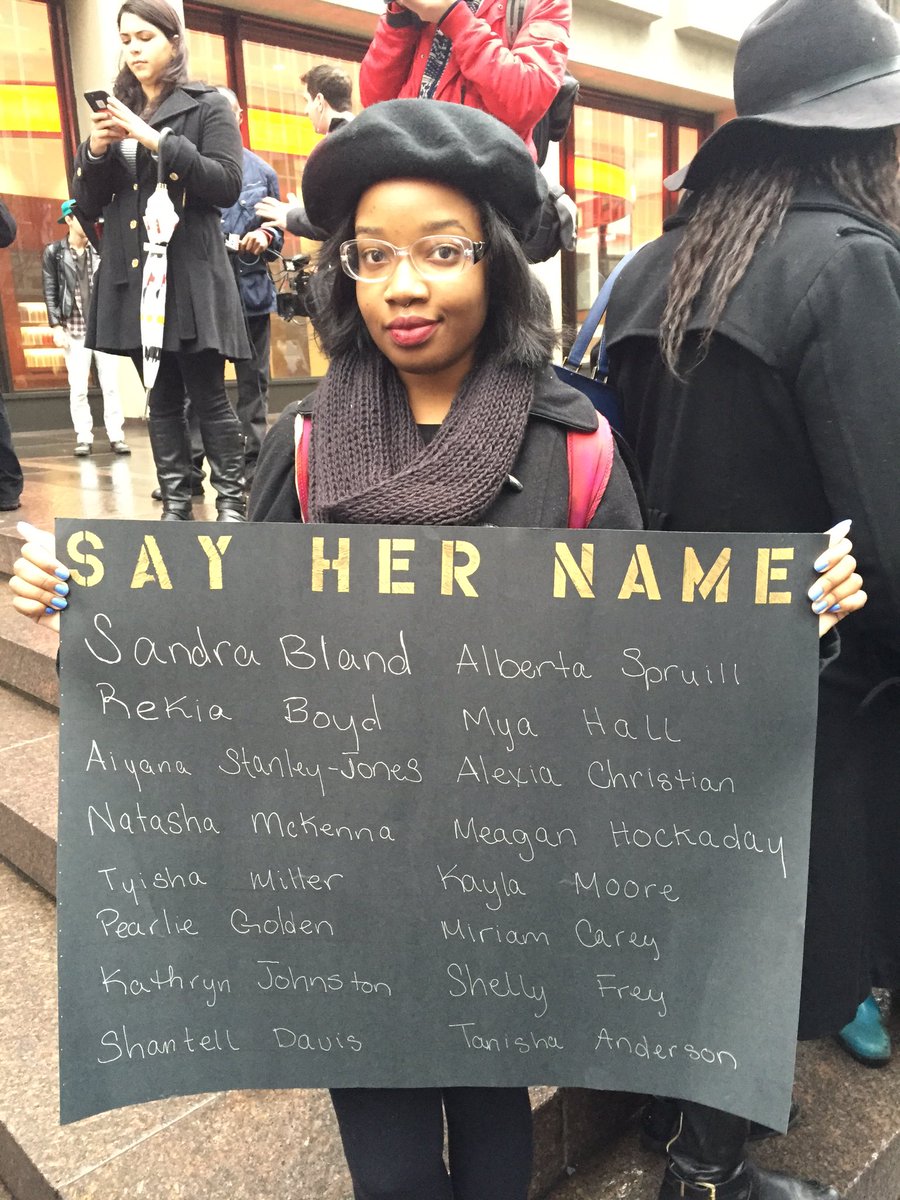 SAY HER NAME
Sandra Bland Alberta Spruill
Rekia Boyd Mya Hall
Aiyana Stanley-Jones Alexia Christian
Natasha McKenna Meagan Hockaday
Tyisha Miller Kayla Moore
Pearlie Golden Miriam Carey
Kathryn Johnston Shelly Frey
Shantell Davis Tanisha Anderson